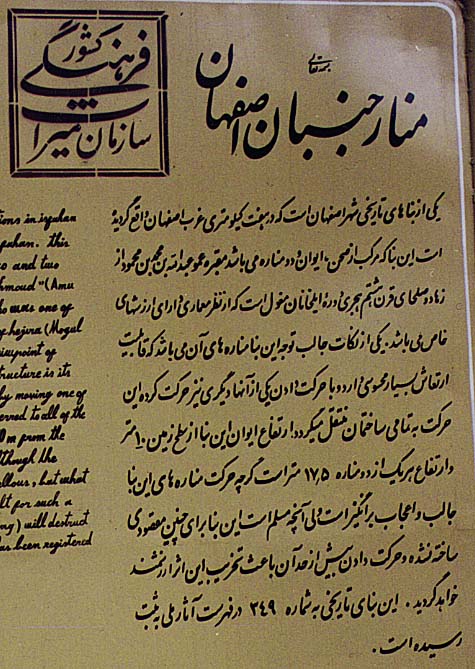 سازمان میراث
فرهنگی
کشور
بسمه تعالی
منار جنبان اصفهان
یکی از بناهای تاریخی شهر اصفهان است که در هفت کیلومتری غرب اصفهان واقع گردیده
است این بنا که مرکب از صحن، ایوان و دو مناره می باشد مقبره عمو عبدالله بن محمد بن محمود از
زهاد و صلحای قرن هشتم هجری و دوره ایلخانان مغول است که از نظر معماری دارای ارزشهای
خاص می باشد. یکی از نکات جالب توجه این بنا مناره های آن می باشد که قابلیت
ارتعاش بسیار محسوسی دارد و با حرکت دادن یکی از آنها دیگری نیز حرکت کرده این
حرکت به تمامی ساختمان منتقل میگردد! ارتفاع ایوان این بنا از سطح زمین ۱۰ متر
و ارتفاع هر یک از دو مناره ۱۷٫۵ متر است گرچه حرکت مناره های این بنا
جالب و اعجاب برانگیز است ولی آنچه مسلم است این بنا برای چنین مقصودی
ساخته نشده و حرکت دادن بیش از حد آن باعث تخریب این اثر ارزشمند
خواهد گردید. این بنای تاریخی به شماره ۳۴۹ در فهرست آثار ملی به ثبت
رسیده است.
tions in isfahan
sfahan. This
o and two
hmoud "(Amu
ho was one of
of hejira (Mogul
viewpoint of
tructure is its
by moving one of
erred to all of the
0m from the
though the
llous, but what
lt for such a
ng) will destruct
has been registered